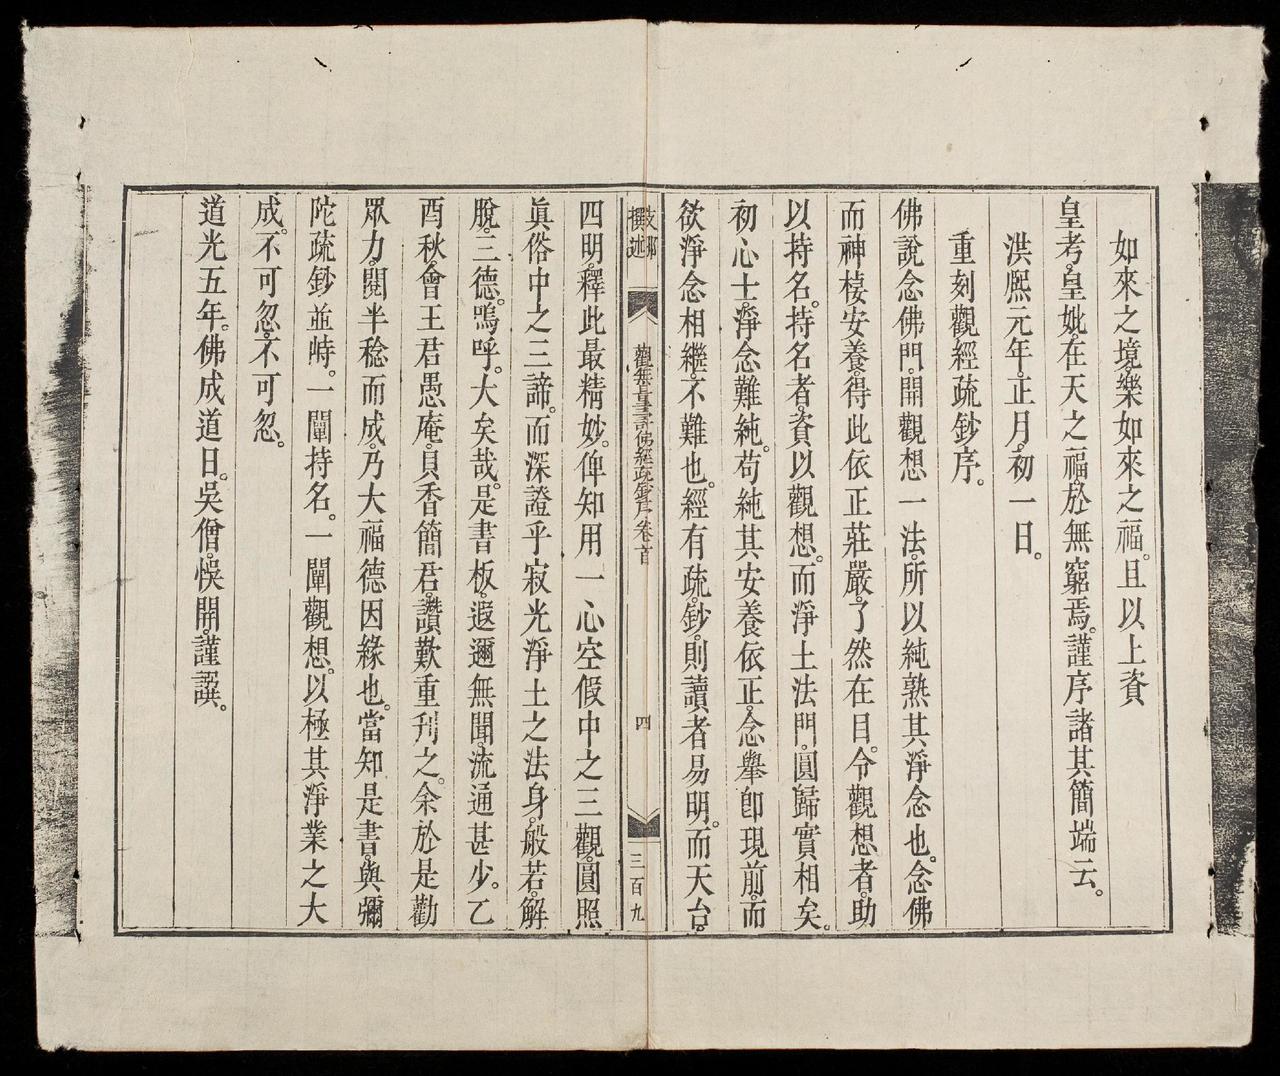 如來之境。樂如來之福。且以上資
皇考。皇妣。在天之福於無窮焉。謹序諸其簡端云。
洪熙元年。正月。初一日。
重刻觀經疏鈔序。
佛說念佛門。開觀想一法。所以純熟其淨念也。念佛
而神棲安養。得此依正莊嚴。了然在目。令觀想者。助
以持名。持名者。資以觀想。而淨土法門。圓歸實相矣。
初心士。淨念難純。苟純其安養依正。念舉卽現前。而
欲淨念相繼。不難也。經有疏。鈔。則讀者易明。而天台。
支那
撰述
觀無量壽佛經疏鈔序卷首
四
三百九
四明。釋此最精妙。俾知用一心空假中之三觀。圓照
眞俗中之三諦。而深證乎寂光淨土之法身。般若。解
脫。三德。嗚呼。大矣哉。是書板。遐邇無聞。流通甚少。乙
酉秋。會王君愚庵。貝香簡君。讚歎重刊之。余於是勸
眾力。閱半稔而成。乃大福德因緣也。當知是書。與彌
陀疏鈔並峙。一闡持名。一闡觀想。以極其淨業之大
成。不可忽。不可忽。
道光五年。佛成道日。吳僧。悞開。謹譔。